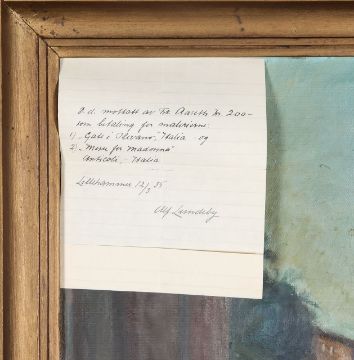 D.d. mottatt av Fra Aaseth kr. 200-
som betaling for maleriene:
1) „Gate i Olevano", Italia og
2) „Messe for Madonna"
Anticoli, - Italia
Lillehammer 12/3 35
Alf Lundeby